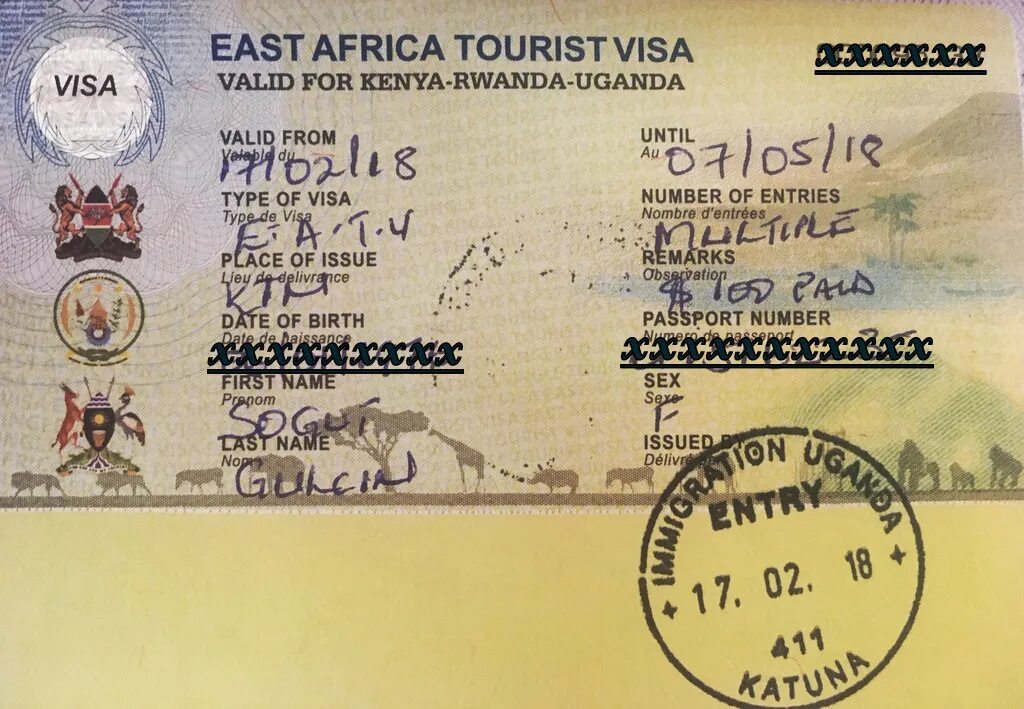 VISA
EAST AFRICA TOURIST VISA
VALID FOR KENYA-RWANDA-UGANDA
xxxxxx
VALID FROM
Valable du
17/02/18
UNTIL
Au
07/05/18
TYPE OF VISA
Type de Visa
E.A.T.V
NUMBER OF ENTRIES
Nombre d'entrées
MULTIPLE
PLACE OF ISSUE
Lieu de delivrance
KTN
REMARKS
Observation
$ 100 PAID
DATE OF BIRTH
Date de naissance
xxxxxxxxx
PASSPORT NUMBER
Numero de passeport
xxxxxxxxxxx
FIRST NAME
Prenom
SOGUT
SEX
Sexe
F
LAST NAME
Nom
GULCIN
ISSUED
IMMIGRATION UGANDA
ENTRY
17. 02. 18
411
KATUNA